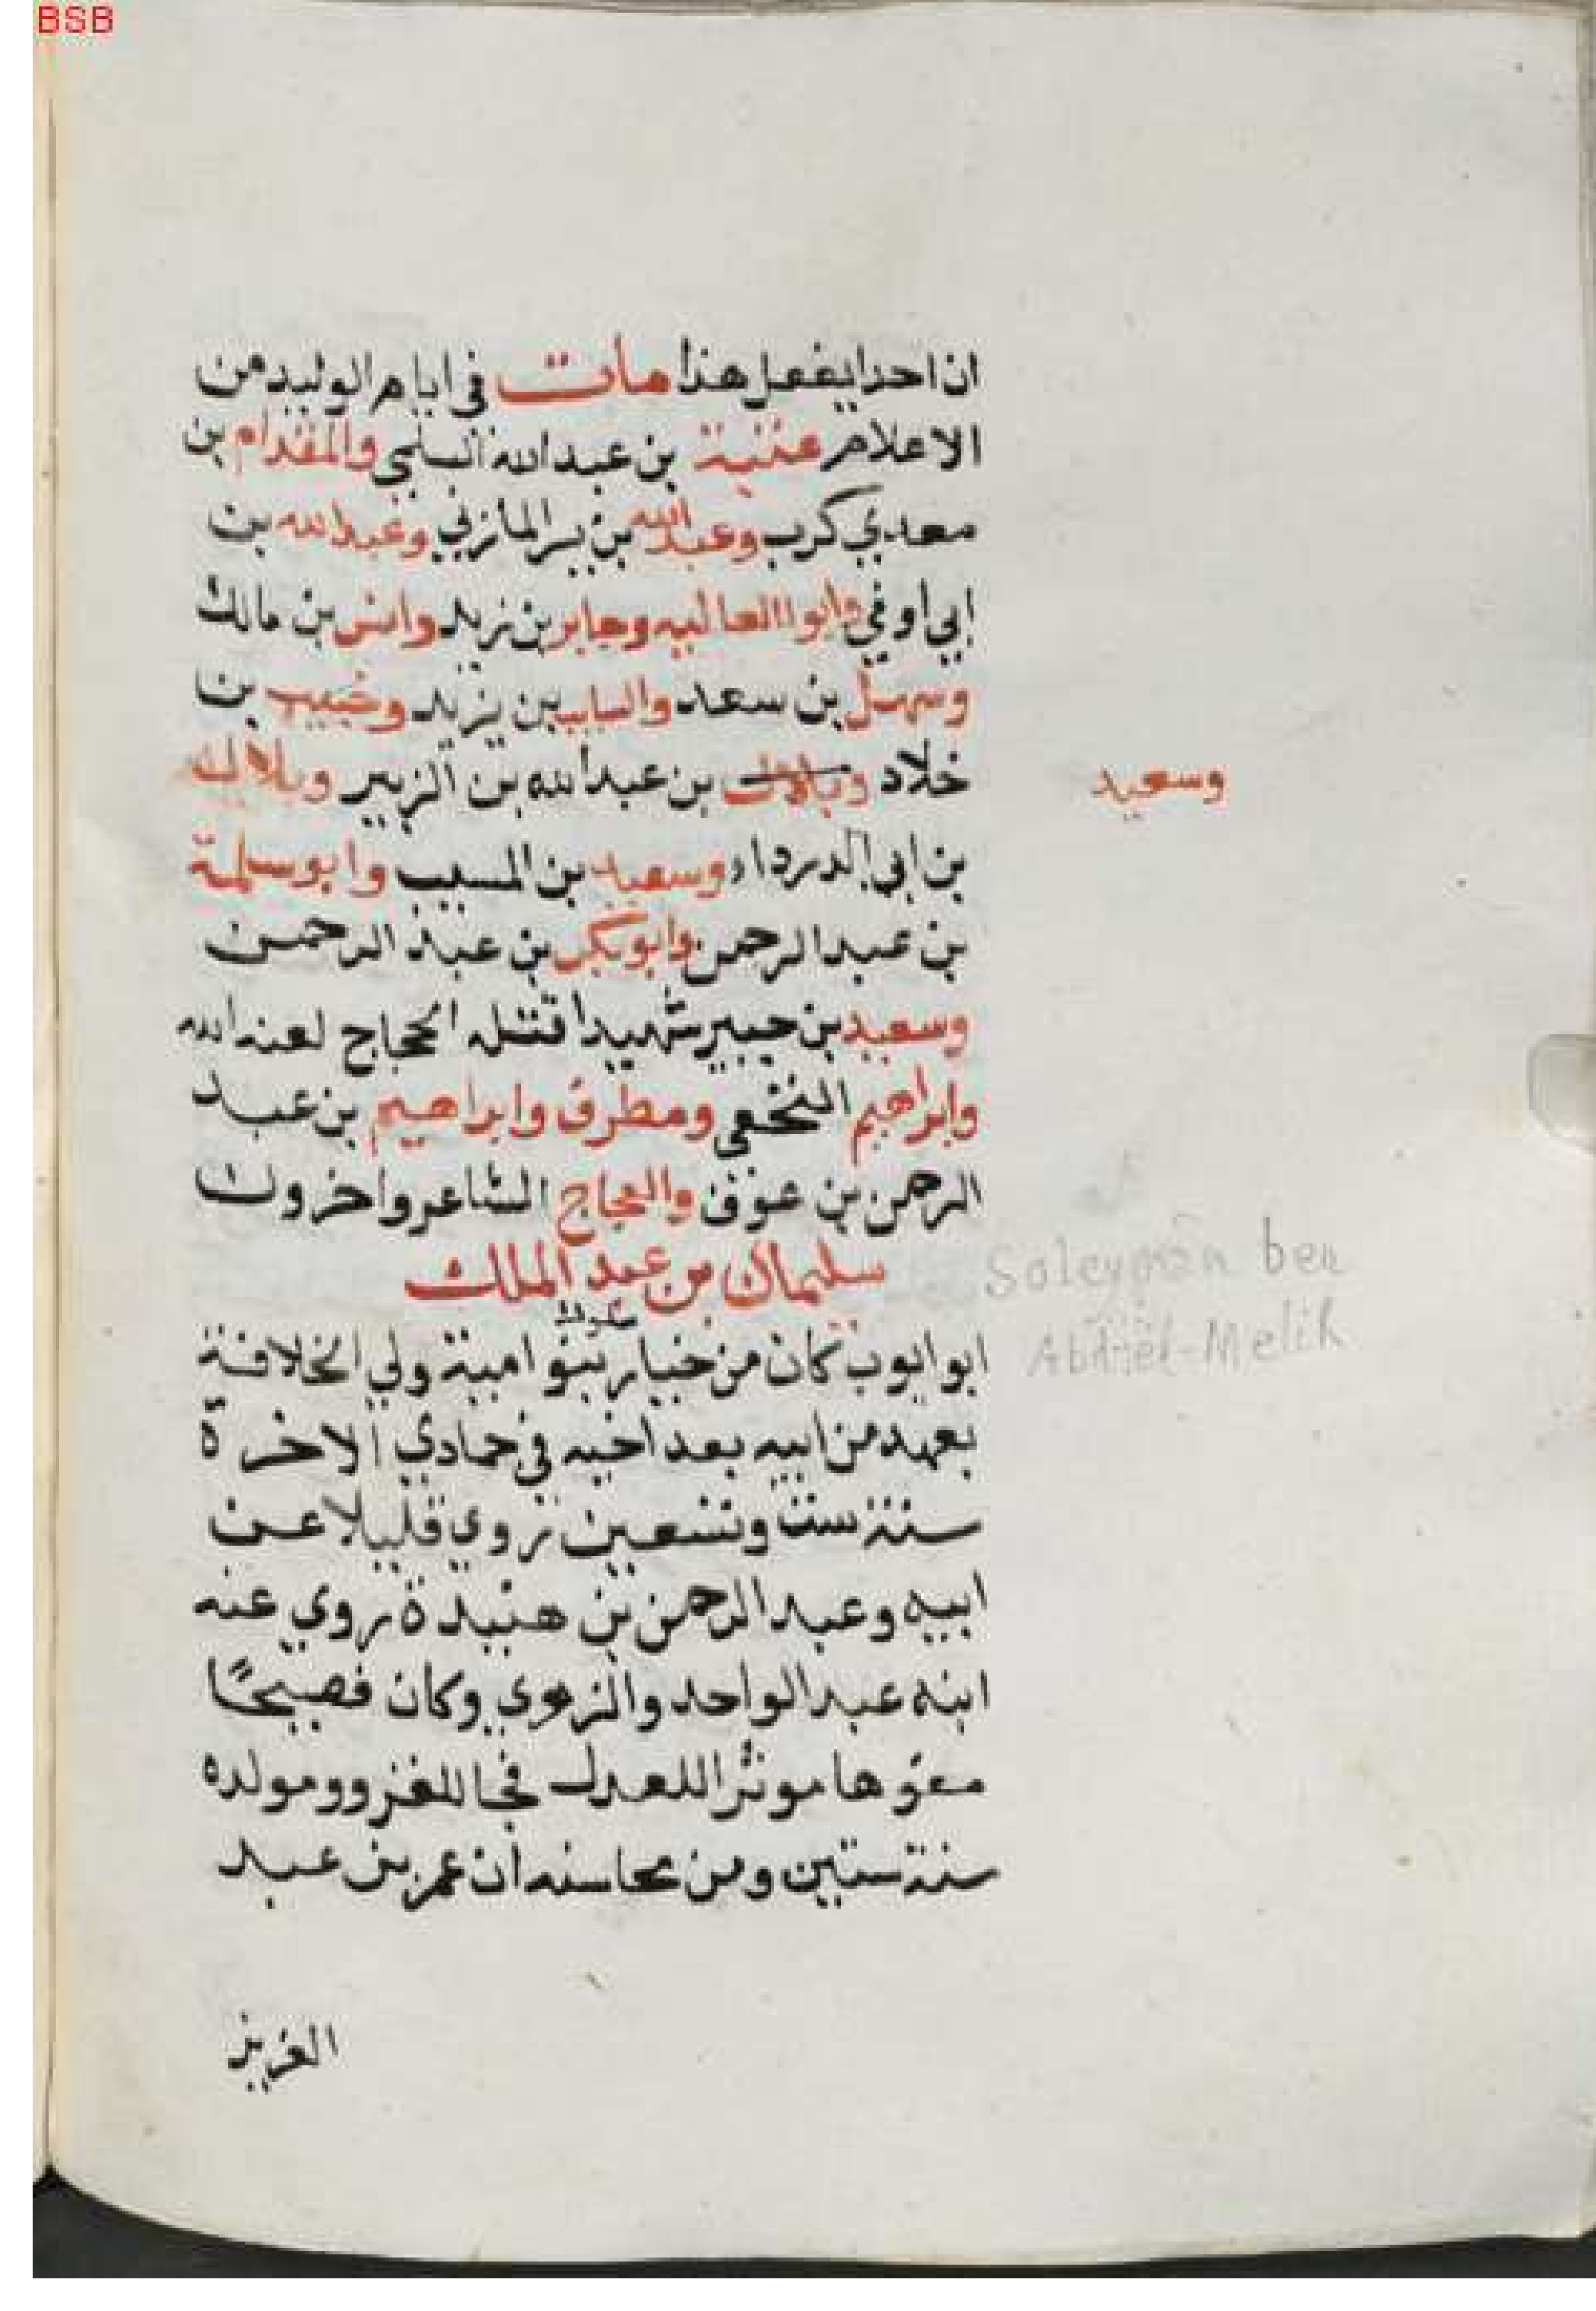 BSB
ان احدا يفعل هذا مات في ايام الوليد من
الاعلام عتبة بن عبد الله السلمي والمقدام بن
معدي كرب وعبد الله بن بسر المازني وعبد الله بن
ابي اوفي وابوا العاليه وجابر بن زيد وانس بن مالك
وسهل بن سعد والسايب بن يزيد وخبيب بن
خلاد وبلال بن عبد الله بن الزبير وبلال
وسعيد
بن ابي الدرداء وسعيد بن المسيب وابو سلمة
بن عبد الرحمن وابو بكر بن عبد الرحمن
وسعيد بن جبير شهيدا قتله الحجاج لعنه الله
وابراهيم النخعي ومطرف وابراهيم بن عبد
الرحمن بن عوف والعجاج الشاعر واخرون
سليمان بن عبد الملك
Soleyman ben
Abd-el-Melik
ابو ايوب كان من خيار بنوا امية ولي الخلافة
بعهد من ابيه بعد اخيه في جمادي الاخرة
سنة ست وتسعين روي قليلا عن
ابيه وعبد الرحمن بن هنبيدة روي عنه
ابنه عبد الواحد والزهوي وكان فصيحًا
مفوها موثرا للعدل محبا للغزو ومولده
سنة ستين ومن محاسنه ان عمر بن عبد
العزيز